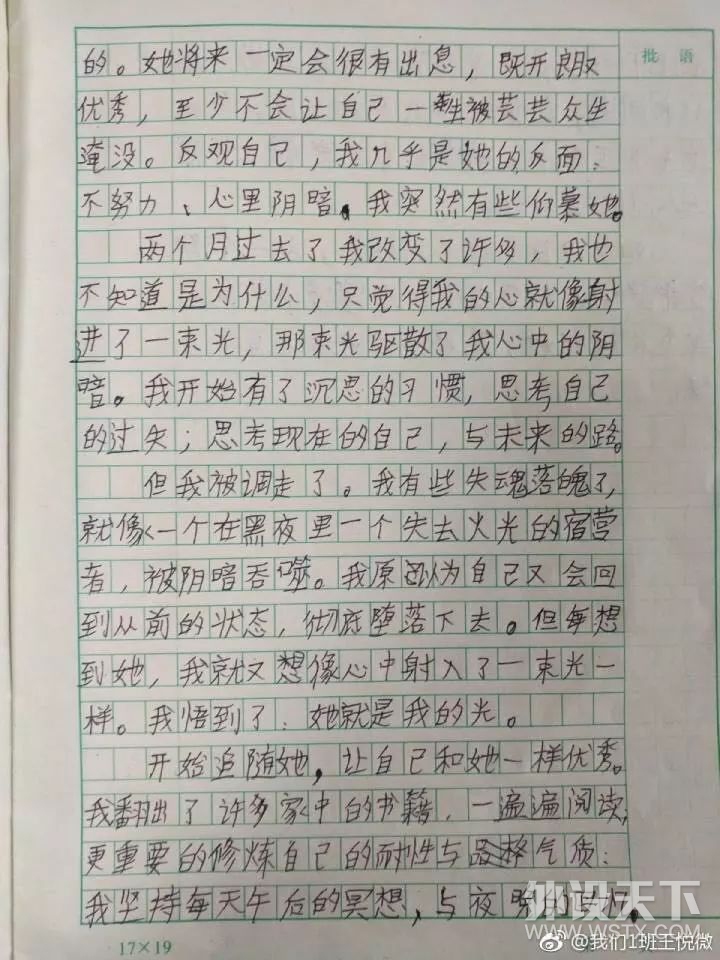 批语
的。她将来一定会很有出息，既开朗又
优秀，至少不会让自己一生被芸芸众生
淹没。反观自己，我几乎是她的反面：
不努力、心里阴暗。我突然有些仰慕她。
两个月过去了我改变了许多，我也
不知道是为什么，只觉得我的心就像射
进了一束光，那束光驱散了我心中的阴
暗。我开始有了沉思的习惯，思考自己
的过失；思考现在的自己，与未来的路。
但我被调走了。我有些失魂落魄了，
就像一个在黑夜里一个失去火光的宿营
者，被阴暗吞噬。我原以为自己又会回
到从前的状态，彻底堕落下去。但每想
到她，我就又想像心中射入了一束光一
样。我悟到了：她就是我的光。
开始追随她，让自己和她一样优秀。
我翻出了许多家中的书籍，一遍遍阅读，
更重要的修炼自己的耐性与气质：
我坚持每天午后的冥想，与夜晚的
17×19
外设天下
WWW.WSTX.COM
@我们1班王悦微